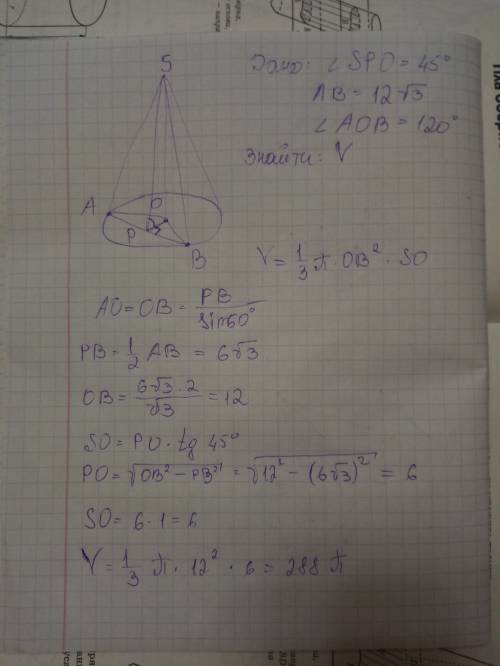 S
Дано: ∠ SPO = 45°
AB = 12√3
∠ AOB = 120°
Знайти: V
A
O
P
B
V = 1/3 π · OB² · SO
AO = OB = PB / sin 60°
PB = 1/2 AB = 6√3
OB = 6√3 · 2 / √3 = 12
SO = PO · tg 45°
PO = √OB² − PB² = √12² − (6√3)² = 6
SO = 6 · 1 = 6
V = 1/3 π · 12² · 6 = 288 π